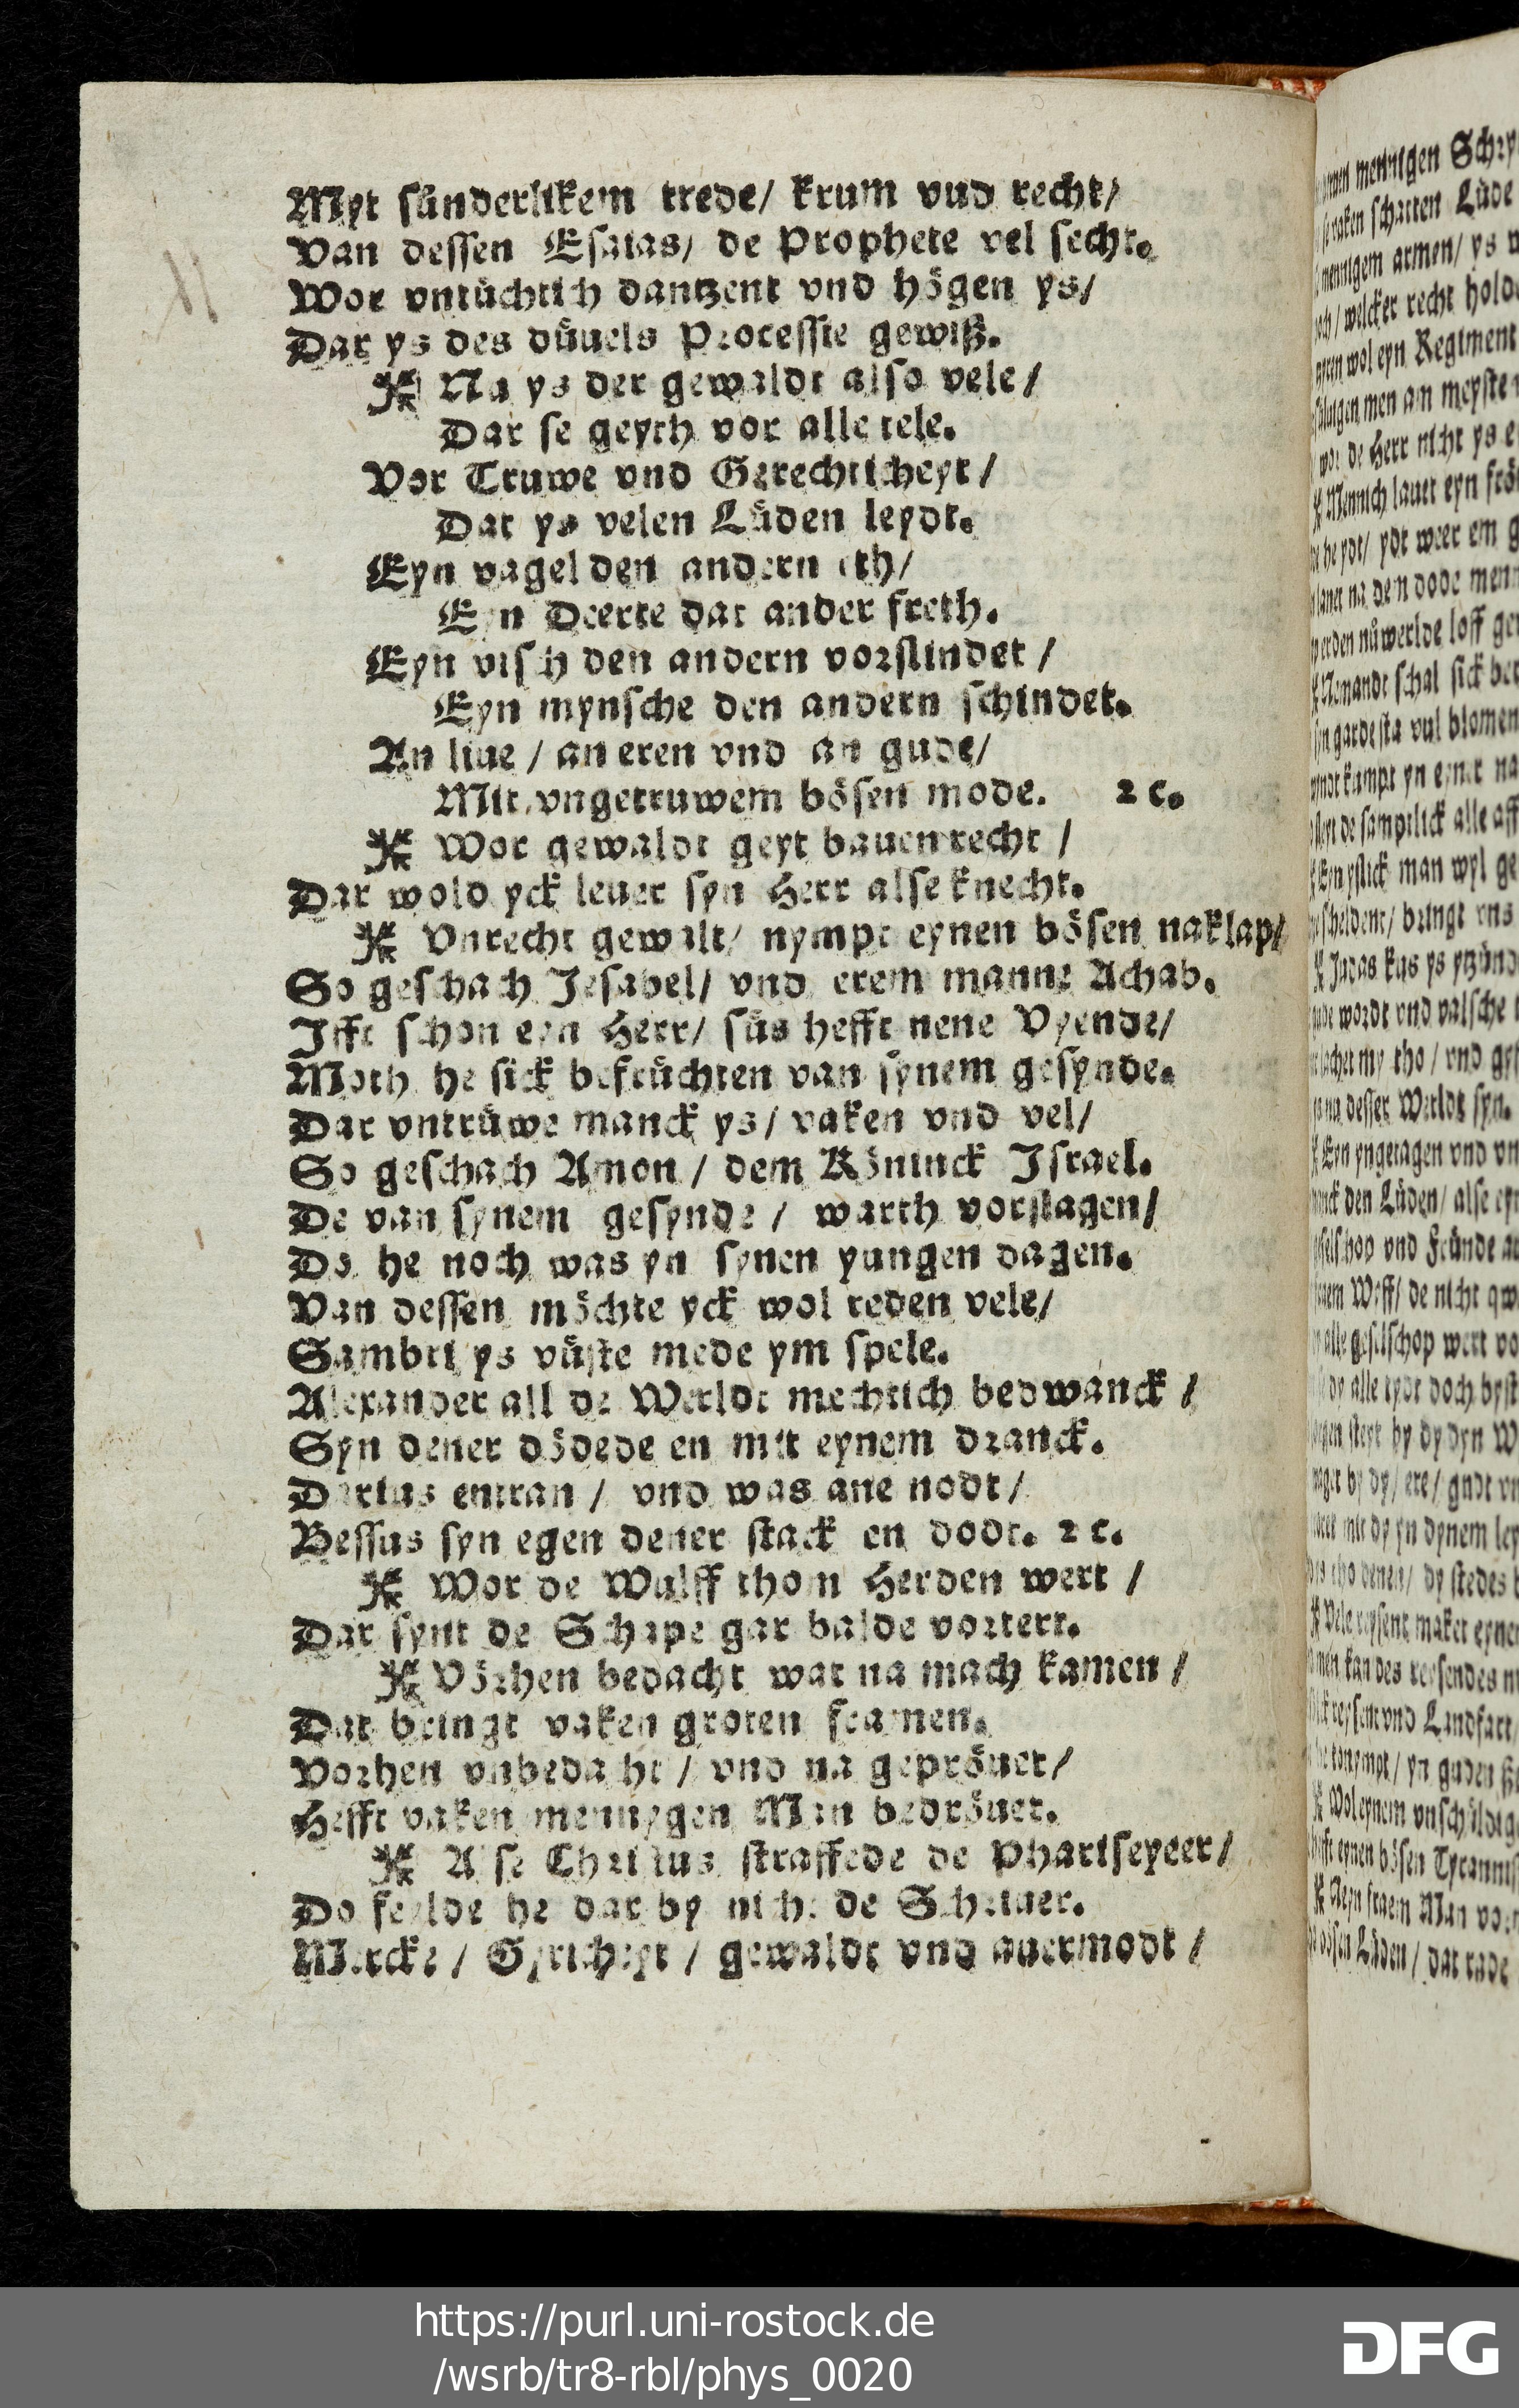 Myt sünderlikem trede/ krum vnd recht/
Van dessen Esaias/ de Prophete vel secht.
Wor vntüchtich dantzent vnd högen ys/
Dar ys des düuels Processie gewiß.
Nu ys der gewaldt also vele/
Dar se geyth vor alle tele.
Vor Truwe vnd Gerechticheyt/
Dat ys velen Lüden leydt.
Eyn vagel den andern eth/
Eyn Deerte dat ander freth.
Eyn visch den andern vorslindet/
Eyn mynsche den andern schindet.
An liue/ an eren vnd an gude/
Mit vngetruwem bösen mode. 2c.
Wor gewaldt geyt bauen recht/
Dar wold yck leuer syn Herr alse knecht.
Vnrecht gewalt/ nympt eynen bösen naklap/
So geschach Jesabel/ vnd erem manne Achab.
Jfft schon eyn Herr/ süs hefft nene Vyende/
Moth he sick befrüchten van synem gesynde.
Dar vntrüwe manck ys/ vaken vnd vel/
So geschach Amon/ dem Köninck Israel.
De van synem gesynde/ warth vorslagen/
Do he noch was yn synen yungen dagen.
Van dessen möchte yck wol reden vele/
Sambri ys vüste mede ym spele.
Alexander all de Werldt mechtich bedwanck/
Syn dener dödede en mit eynem dranck.
Darius entran/ vnd was ane nodt/
Bessus syn egen dener stack en dodt. 2c.
Wor de Wulff thom Herden wert/
Dar synt de Schape gar balde vortert.
Vörhen bedacht wat na mach kamen/
Dat bringt vaken groten framen.
Vorhen vnbedacht/ vnd na gepröuet/
Hefft vaken mennygen Man bedröuet.
Alse Christus straffede de Phariseyeer/
Do feylde he dar by nicht de
Mercke/ Gyricheyt/ gewaldt vnd auermodt/
https://purl.uni-rostock.de
/wsrb/tr8-rbl/phys_0020
DFG